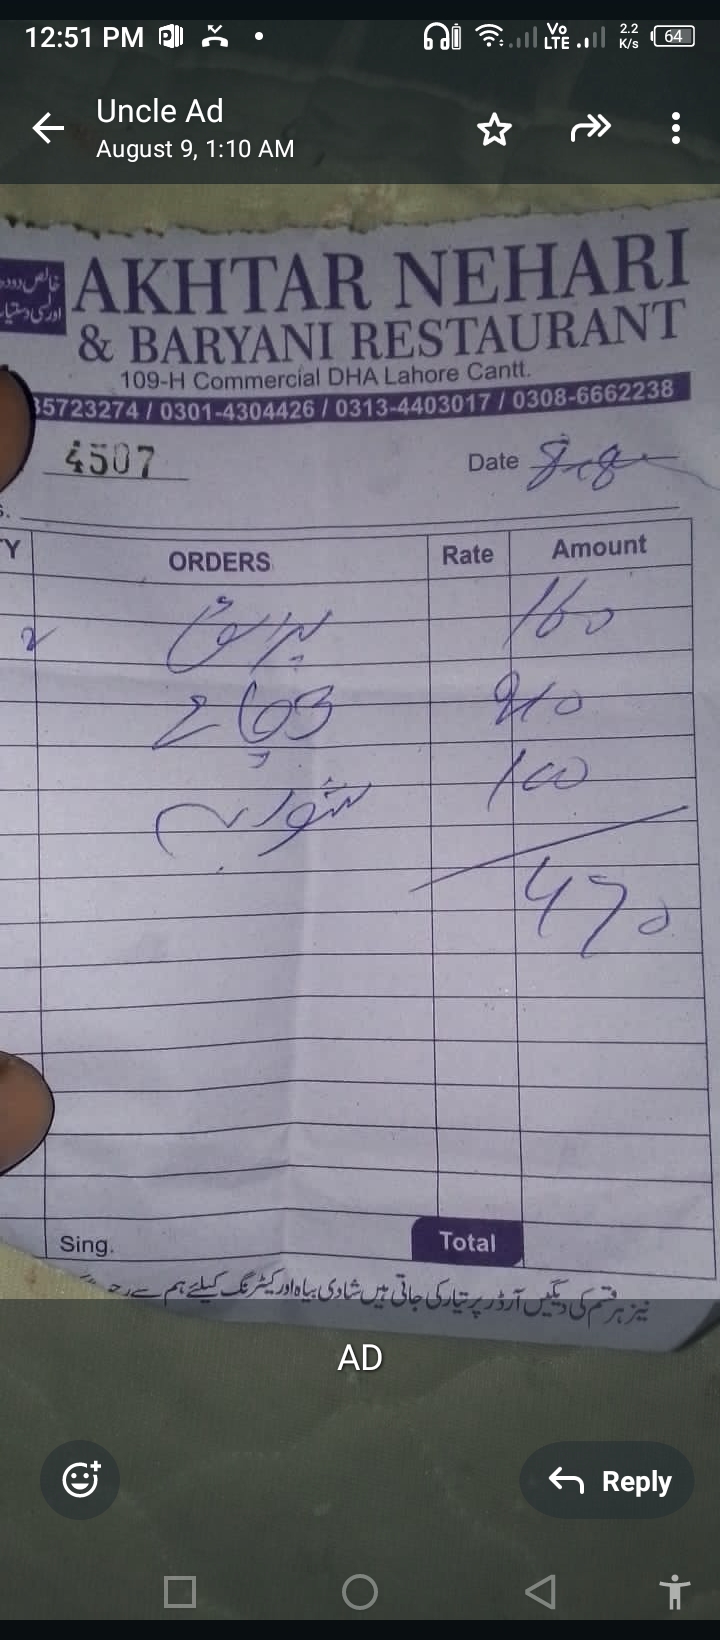 12:51 PM
Vo LTE 2.2 K/s 64
Uncle Ad
August 9, 1:10 AM
خالص دودھ
اور لسی دستیاب
AKHTAR NEHARI
& BARYANI RESTAURANT
109-H Commercial DHA Lahore Cantt.
35723274 / 0301-4304426 / 0313-4403017 / 0308-6662238
4507 Date 8-8
s.
TY ORDERS Rate Amount
2 160
100
470
Sing. Total
نیز ہر قسم کی دیگیں آرڈر پر تیار کی جاتی ہیں شادی بیاہ اور کیٹرنگ کیلئے ہم سے
AD
Reply